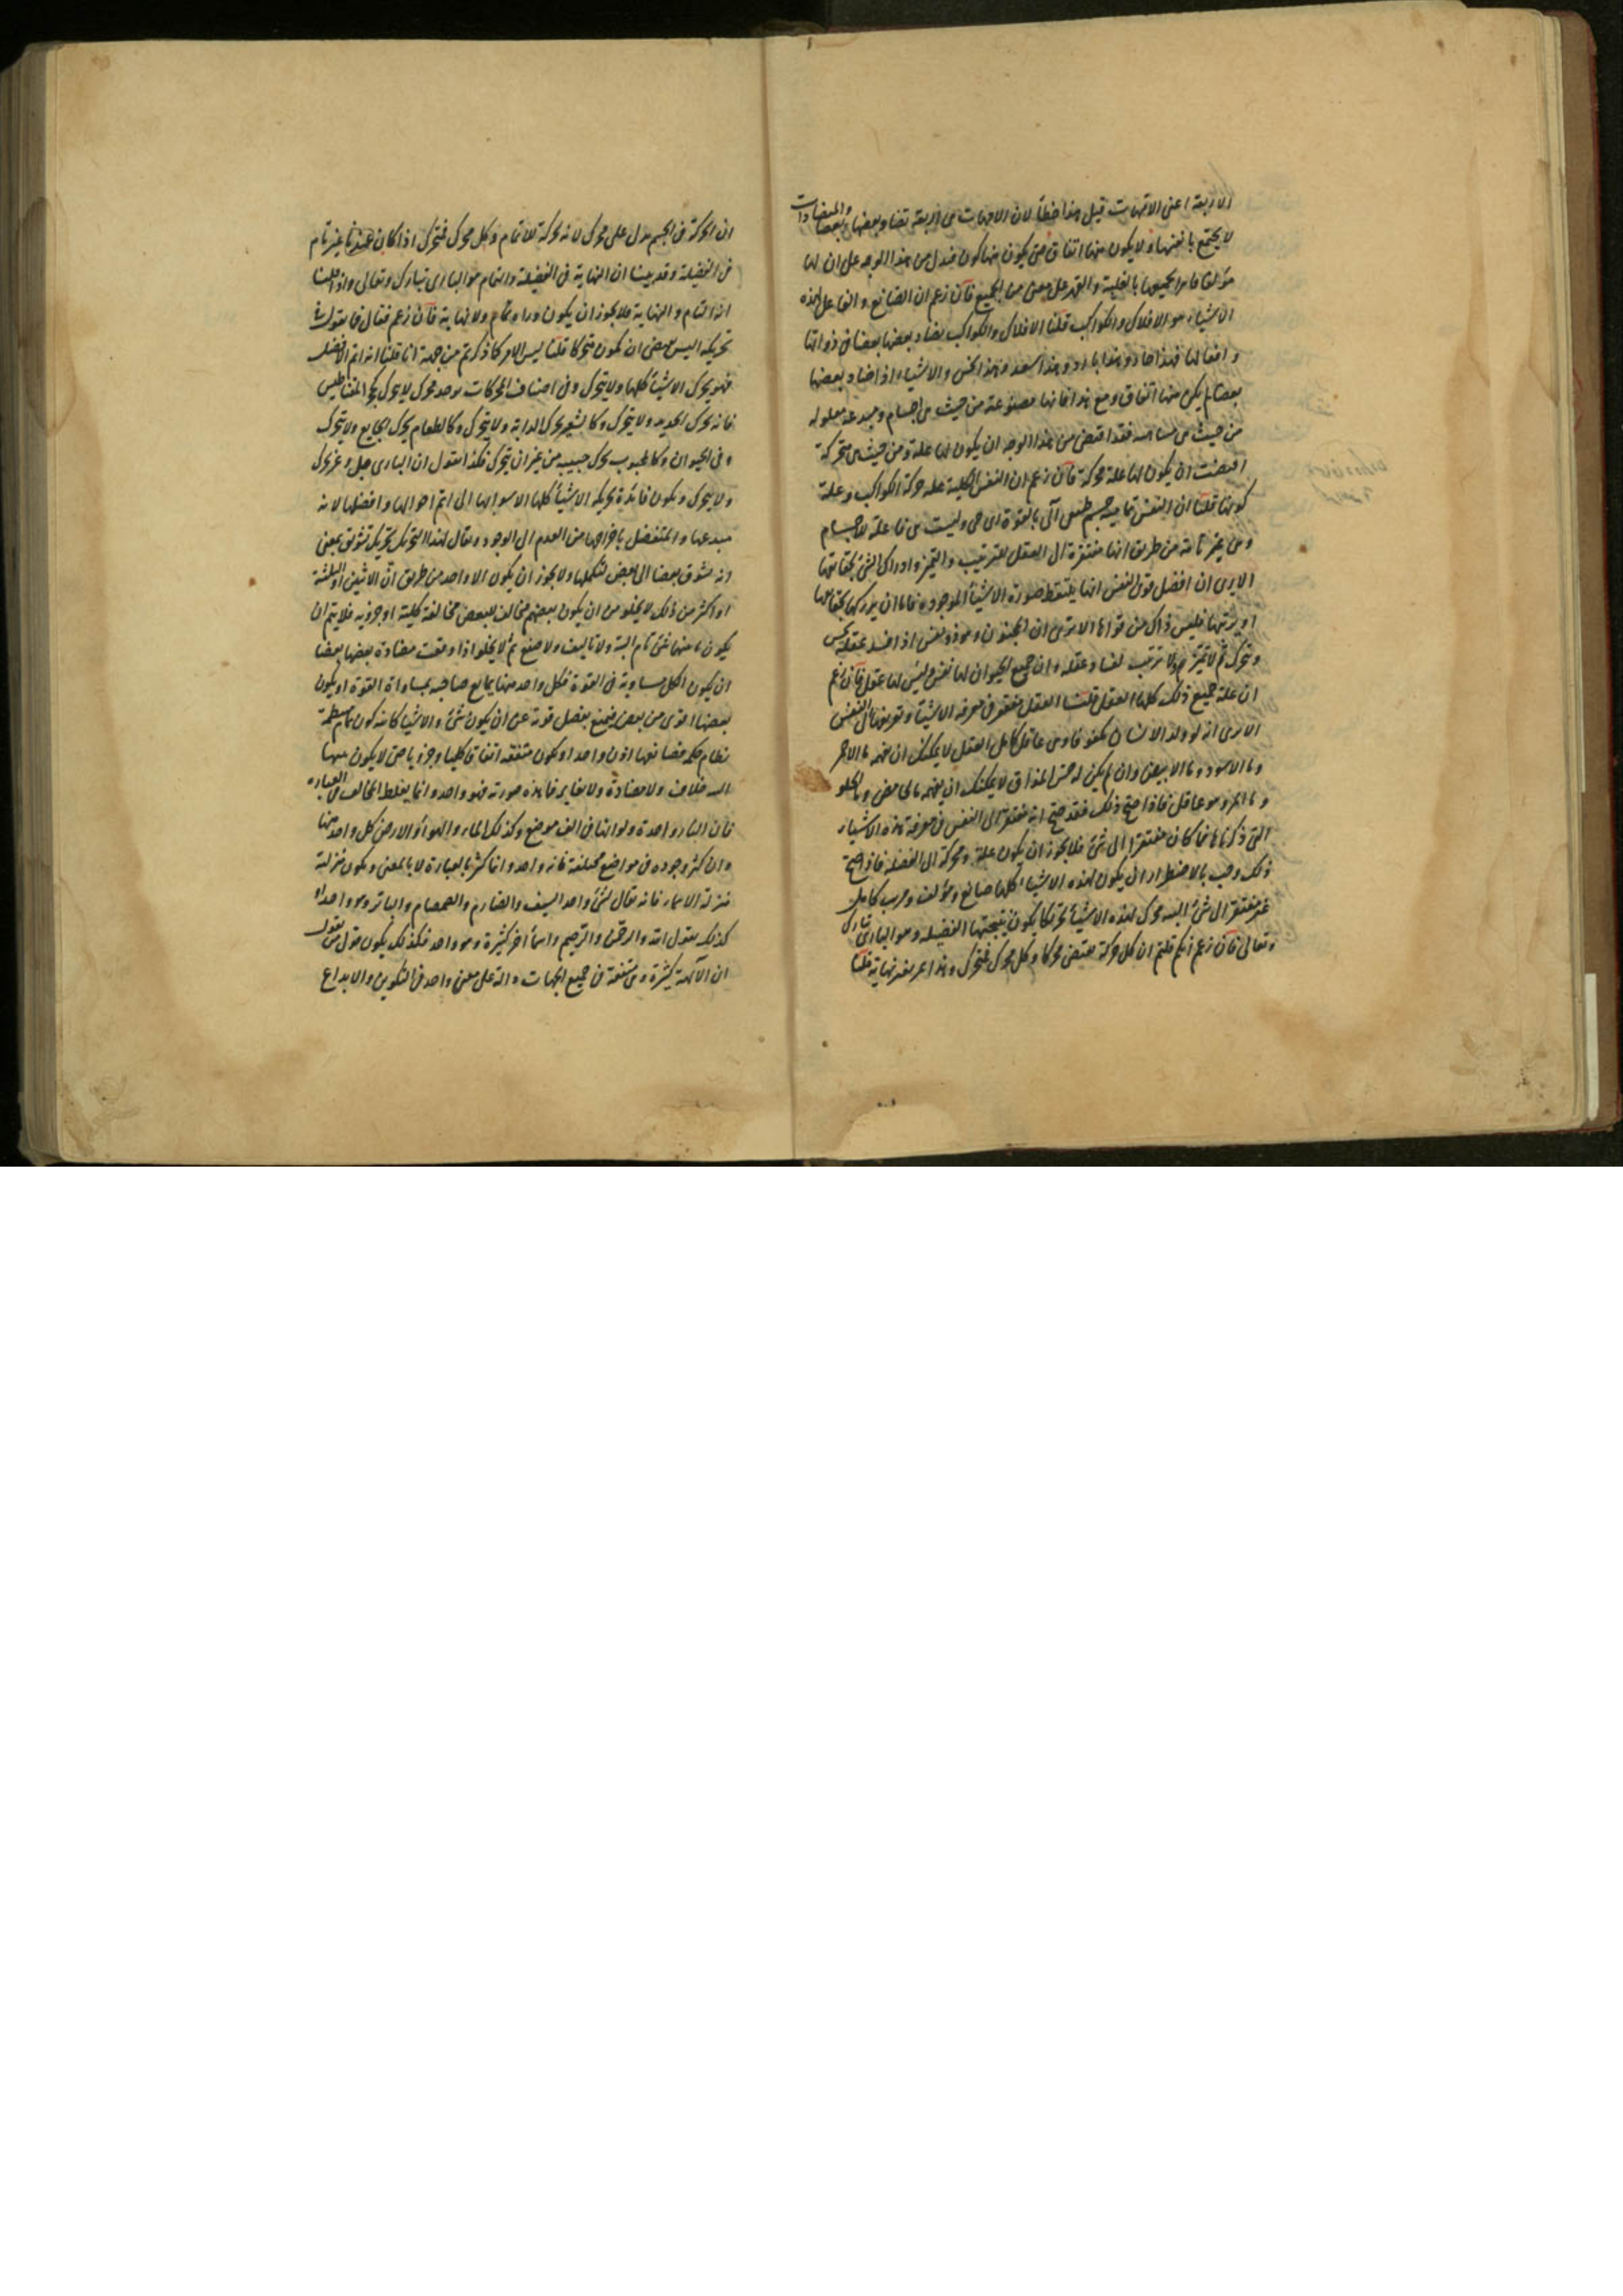 الاربعة اعنى الامهات قيل هذا خطأ لان الامهات هى اربعة تضاد بعضها بعضا والمتضادات
لا يجتمع بانفسها ولا يكون منها اتفاق حتى يكون منها كون فيدل من هذا الوجه على ان لها
مؤلفا قاسرا لجميعها بالغلبة والقهر على معنى من الجميع فان زعم ان الصانع والفاعل لهذه
الاشياء هو الافلاك والكواكب قلنا الافلاك والكواكب يضاد بعضها بعضا فى ذواتها
وافعالها فهذا حار وهذا بارد وهذا سعد وهذا نحس والاشياء اذا ضاد بعضها
بعضا لم يكن منها اتفاق ومع هذا فانها مصنوعة من حيث هى اجسام ومبدعة معلوله
من حيث هى فقد اقتضى من هذا الوجه ان يكون لها علة ومن حيث هى متحركة
اقتضت ان يكون لها علة محركة فان زعم ان النفس الكلية علة حركة الكواكب وعلة
كونها قلنا ان النفس تمامية جسم طبيعى آلى بالقوة اى حى وليست هى فاعلة لاجسام
وهى غير تامة من طريق انها مفتقرة الى العقل للترتيب والتميز وادراك الشئ بحقائقها
الا يرى ان افضل قوى النفس انها يلتقط صورة الاشياء الموجوده فاما ان يدركها بحقائقها
او يرتبها فليس ذاك من قواها الا ترى ان المجنون هو ذو نفس اذا فسد عقله يحس
ويتحرك ثم لا تميز له ولا ترتيب لفساد عقله وان جميع الحيوان لها نفس وليس لها عقل فان زعم
ان علة جميع ذلك كلها العقل قلنا العقل مفتقر فى معرفة الاشياء وتعريفها الى النفس
الا ترى انه لو ولد الانسان مكفوفا وهو عاقل كامل العقل لا يمكنك ان تفهمه ما الاحمر
وما الاسود وما الابيض وان لم يكن له حس المذاق لا يمكنك ان يفهمه ما الحامض وما الحلو
وما المر وهو عاقل فاذا صح ذلك فقد صح انه مفتقر الى النفس فى معرفة هذه الاشياء
التى ذكرناها فما كان مفتقرا الى شئ فلا يجوز ان يكون علة ومحركة الى الفضله فاذ صح
ذلك وجب بالاضطرار ان يكون لهذه الاشياء كلها صانع ومؤلف ومرتب كامل
غير مفتقر الى شئ البته محرك لهذه الاشياء تحريكا يكون نتيجتها الفضيله وهو البارى تبارك
وتعالى فان زعم انكم قلتم ان كل حركة تقتضى محركا وكل محرك فمتحرك وهذا امر بغير نهاية قلنا
ان الحركة فى الجسم تدل على محرك لانه حركة للاتمام وكل محرك فمتحرك اذا كان غير تام
فى الفضيلة وقد بينا ان النهاية فى الفضيلة والتمام هو البارى تبارك وتعالى واذ قلنا
انه التمام والنهاية فلا يجوز ان يكون وراه تمام ولا نهاية فان زعم فقال فما تقول فى
تحريكه اليس يقتضى ان يكون متحركا قلنا ليس الامر كما ذكرتم من جهة انا قلنا انه اتم الافضل
فهو يحرك الاشياء كلها ولا يتحرك وفى اصناف الحركات يوجد محرك لا يتحرك كحجر المغناطيس
فانه يحرك الحديد ولا يتحرك وكالشعير يحرك الدابة ولا يتحرك وكالطعام يحرك الجايع ولا يتحرك
وفى الحيوان وكالمحبوب يحرك حبيبه من غير ان يتحرك فكذا نقول ان البارى جل وعز يحرك
ولا يتحرك ويكون فائدة تحريكه الاشياء كلها الا سوابها الى اتم احوالها وافضلها لانه
مبدعها والمتفضل باخراجها من العدم الى الوجود ويقال لهذا التحريك تحريك تشوق يعنى
انه يشوق بعضا الى بعض لتكملها ولا يجوز ان يكون الا واحد من طريق ان الاثنين او الثلثة
او اكثر من ذلك لا يخلو من ان يكون بعضهم مخالف للبعض مخالفة كلية او جزوية فلا يتم ان
يكون منها شئ تام البتة ولا تاليف ولا صنع ثم لا يخلوا اذا وقعت مضادة بعضها بعضا
ان يكون الكل مساوية فى القوة فكل واحد منها يمانع صاحبه بمساواة القوة او يكون
بعضها اقوى من بعض فيمنع بفضل قوته عن ان يكون شئ والاشياء كائنة كون تام منتظمة
نظام حكمة فصانعها اذن واحد او يكون متفقه اتفاقا كليا وجزويا حتى لا يكون بينها
البته خلاف ولا مضادة ولا تغاير فما هذه صورته فهو واحد وانما يغلط المخالف فى العباره
فان النار واحدة ولو انها فى الف موضع وكذلك الماء والهواء والارض كل واحد منها
وان كثر وجوده فى مواضع مختلفة فانه واحد وانما كثر بالعبارة لا بالمعنى ويكون منزلته
منزلة الاسماء فانه يقال لشئ واحد السيف والصارم والصمصام والباتر وهو واحد
كذلك يقول الله والرحمن والرحيم واسما اخر كثيرة وهو واحد فكذلك يكون قول من يقول
ان الآلهة كثيرة وهى متفقة فى جميع الجهات دالة على معنى واحد فى التكوين والابداع